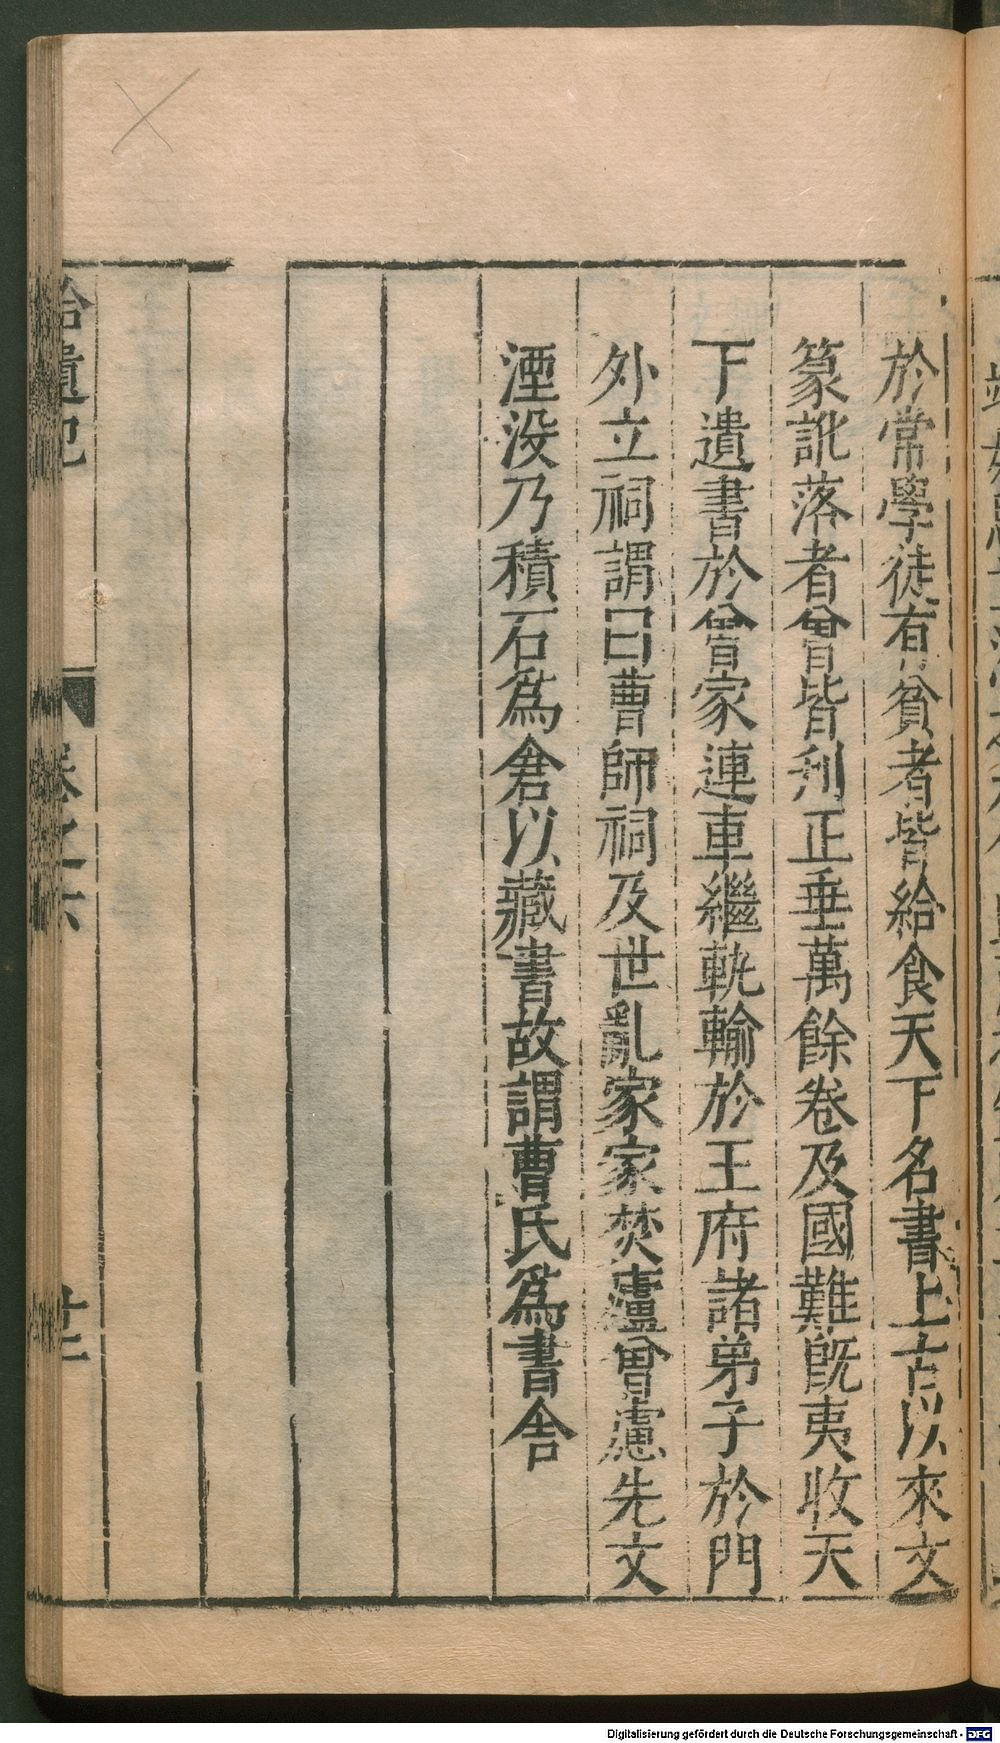 於常學徒有貧者皆給食天下名書上古以來文
篆訛落者曾皆刋正垂萬餘卷及國難旣夷收天
下遺書於曾家連車繼軌輸於王府諸弟子於門
外立祠謂曰曹師祠及世亂家家焚廬曾慮先文
湮没乃積石爲倉以藏書故謂曹氏爲書舍
拾遺記
卷之六
廿二
Digitalisierung gefördert durch die Deutsche Forschungsgemeinschaft - DFG